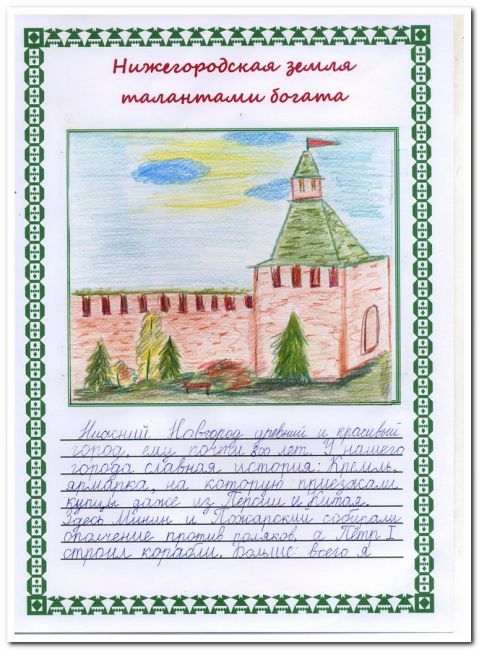 Нижегородская земля
талантами богата
Нижний Новгород древний и красивый
город, ему почти 800 лет. У нашего
города славная история: Кремль,
ярмарка, на которую приезжали
купцы даже из Персии и Китая.
Здесь Минин и Пожарский собирали
ополчение против поляков, а Пётр I
строил корабли. Больше всего я